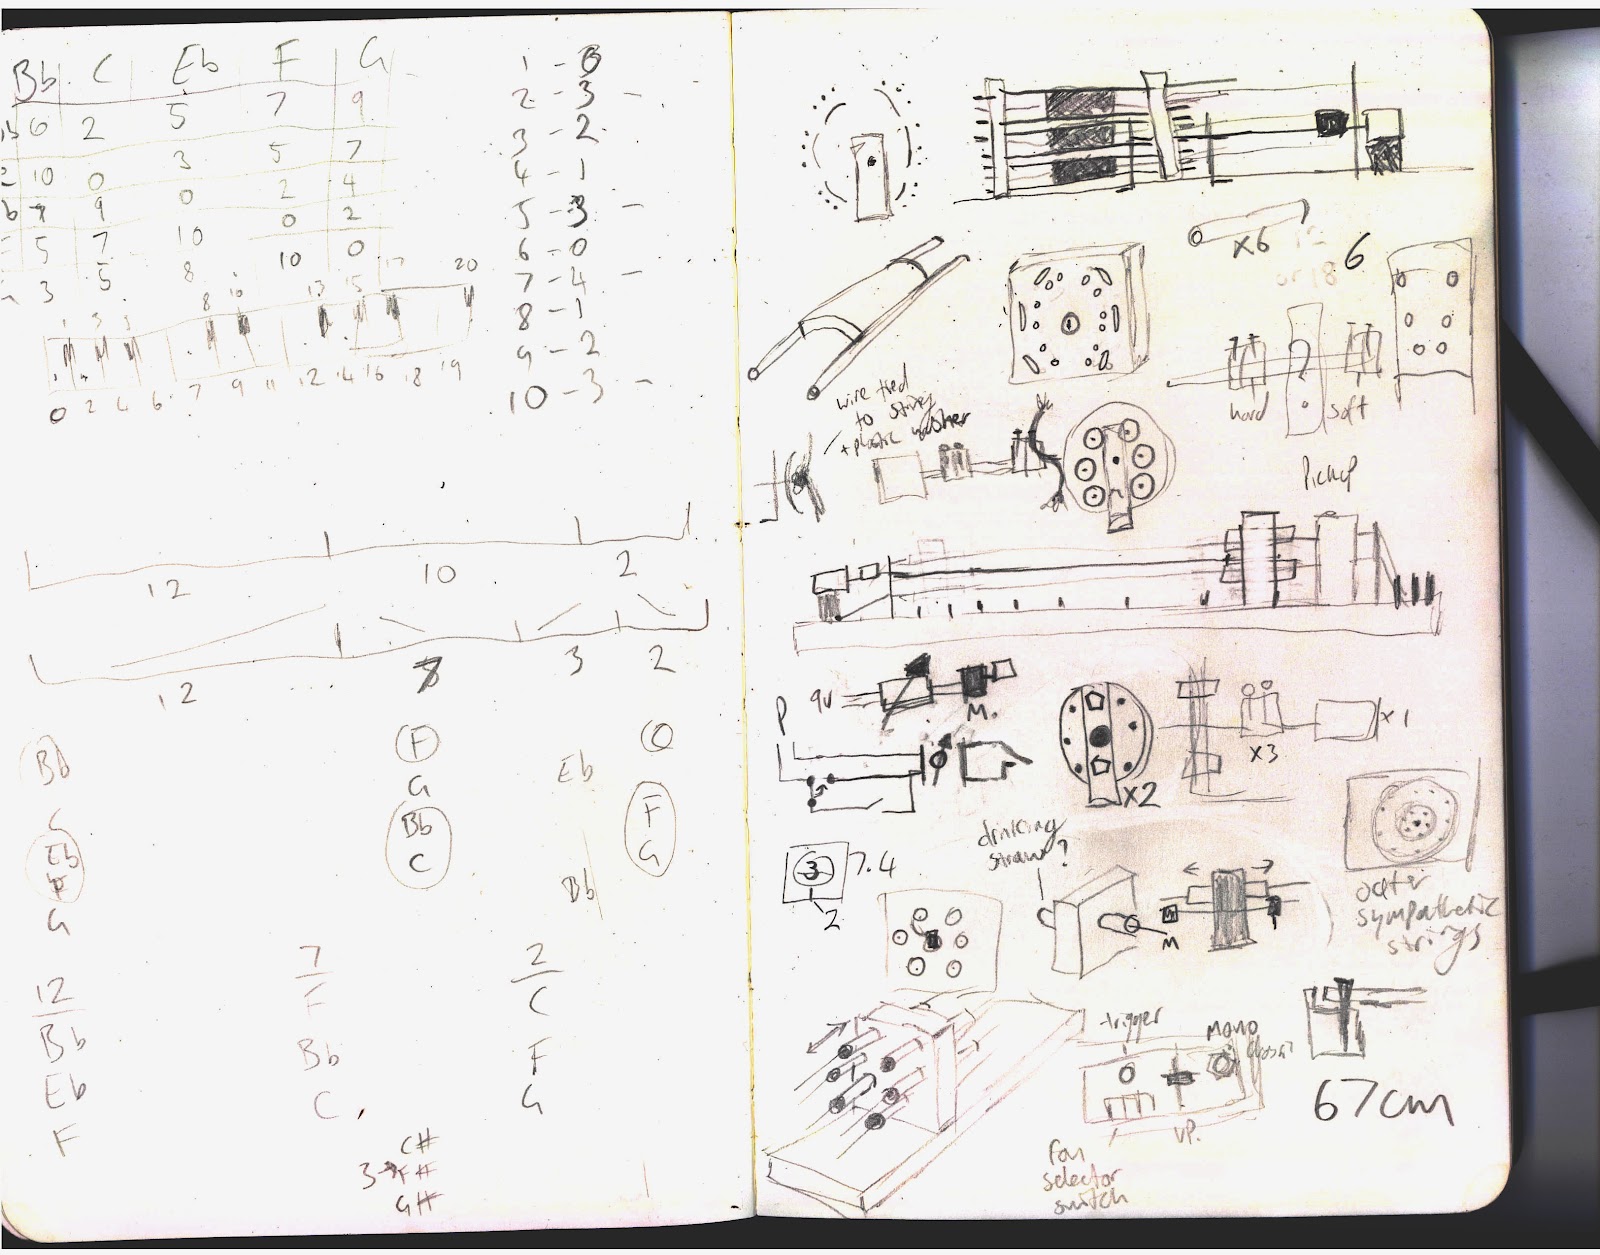 Bb C Eb F G
6 2 5 7 9
10 0 3 5 7
9 0 2 4
5 7 10 0 2
3 5 8 10 0
1 - 0
2 - 3 -
3 - 2
4 - 1
5 - 3 -
6 - 0
7 - 4 -
8 - 1
9 - 2
10 - 3 -
1 3 5 8 10 13 15 17 20
0 2 4 6 7 9 11 12 14 16 18 19
12 10 2
12 8 3 2
Bb
C
Eb
F
G
F
G
Bb
C
Eb
Bb
F
G
12
Bb
Eb
F
7
F
Bb
C
2
C
F
G
C#
3 F#
G#
x6
6
hard soft
wire tied
to string
+ plastic washer
Pickup
9v
M.
P
x2
x3
x1
drinking
straw?
3 7.4
2
M
outer
sympathetic
strings
trigger
mono
VP.
fan
selector
switch
67cm